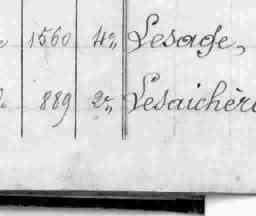 1560 4e Lesage,
889 2e Lesaichère